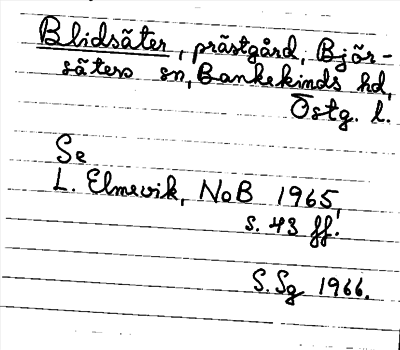 Blidsäter, prästgård, Bjär-
säters sn, Bankekinds hd,
Östg. l.
Se
L. Elmevik, NoB 1965,
s. 43 ff.
S. Sg 1966.